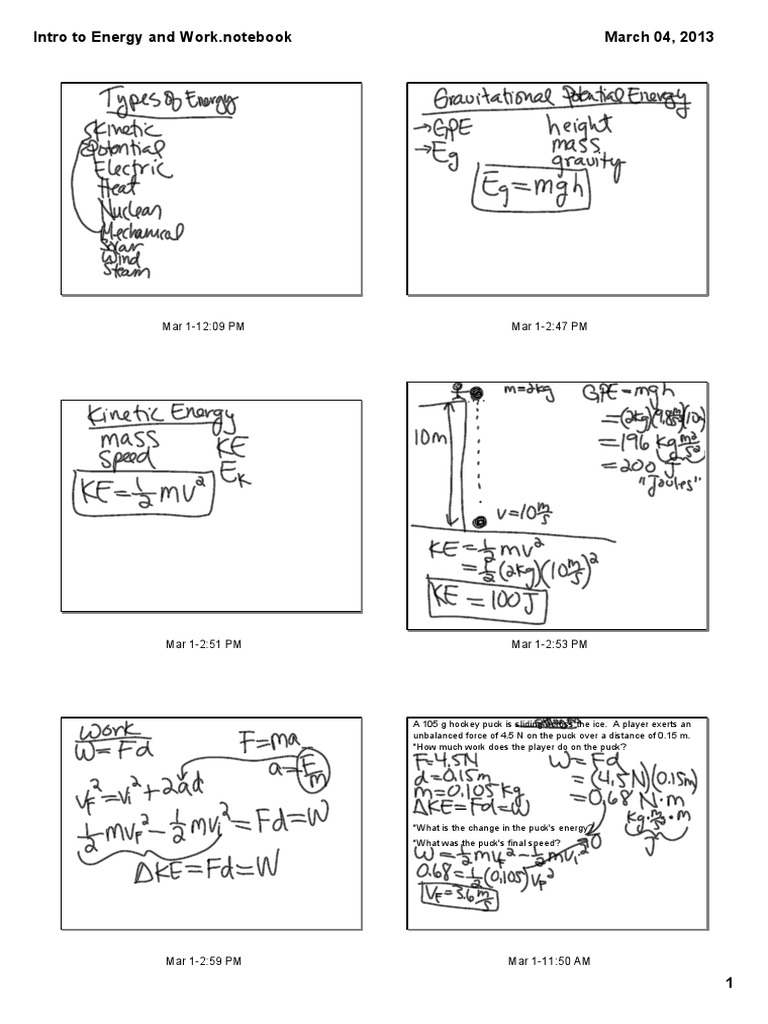 Intro to Energy and Work.notebook
March 04, 2013
Types of Energy
Kinetic
Potential
Electric
Heat
Nuclear
Mechanical
Solar
Wind
Steam
Mar 1-12:09 PM
Gravitational Potential Energy
→GPE height
→Eg mass
gravity
Eg = mgh
Mar 1-2:47 PM
Kinetic Energy
mass KE
speed EK
KE = 1/2 mv²
Mar 1-2:51 PM
m=2kg
10m
v=10 m/s
GPE = mgh
= (2kg)(9.8 m/s²)(10m)
= 196 kg m²/s²
= 200 J
"Joules"
KE = 1/2 mv²
= 1/2 (2kg)(10 m/s)²
KE = 100J
Mar 1-2:53 PM
Work
W = Fd
F=ma
a = F/m
vF² = vi² + 2ad
1/2 mvF² - 1/2 mvi² = Fd = W
ΔKE = Fd = W
Mar 1-2:59 PM
A 105 g hockey puck is sliding across the ice. A player exerts an
unbalanced force of 4.5 N on the puck over a distance of 0.15 m.
*How much work does the player do on the puck?
F=4.5N
d=0.15m
m=0.105 kg
ΔKE=Fd=W
W = Fd
= (4.5N)(0.15m)
= 0.68 N·m
kg·m/s²·m
J
*What is the change in the puck's energy?
*What was the puck's final speed?
W = 1/2 mvF² - 1/2 mvi² 0
0.68 = 1/2 (0.105) vF²
VF = 3.6 m/s
Mar 1-11:50 AM
1